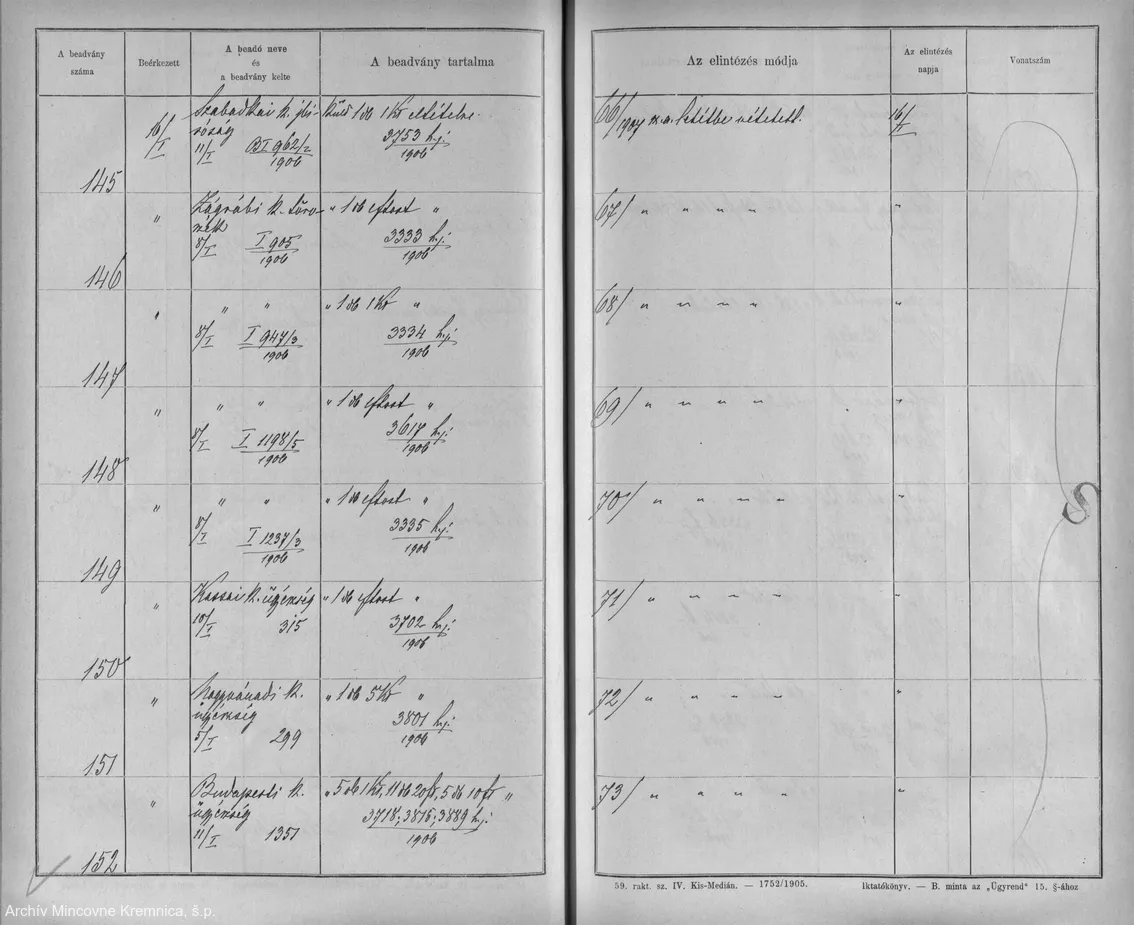 A beadvány
száma
Beérkezett
A beadó neve
és
a beadvány kelte
A beadvány tartalma
Az elintézés módja
Az elintézés
napja
Vonatszám
145
16/I
Szabadkai k. jbí-
róság
11/I BI 962/2
1906
küld 1 db 1 Kr elitélve.
3753 h.j.
1906
66/1907 sz. a. letétbe vétetett.
16/I
146
"
Zágrábi k.
8/I I 905
1906
" 1 db "
3333 h.j.
1906
67/ " " " "
"
147
"
" "
8/I I 947/3
1906
" 1 db 1 Kr "
3334 h.j.
1906
68/ " " " "
"
148
"
" "
8/I I 1198/5
1906
" 1 db "
3617 h.j.
1906
69/ " " " "
"
149
"
" "
8/I I 1237/3
1906
" 1 db "
3335 h.j.
1906
70/ " " " "
"
150
"
Kassai k. ügyészség
10/I 315
" 1 db "
3702 h.j.
1906
71/ " " " "
"
151
"
Nagyváradi k.
ügyészség
5/I 299
" 1 db 5 Kr "
3801 h.j.
1906
72/ " " " "
"
152
"
Budapesti k.
ügyészség
11/I 1351
" 5 db 1 Kr, 11 db 20 fr, 5 db 10 fr "
3718; 3815; 3889 h.j.
1906
73/ " " " "
59. rakt. sz. IV. Kis-Medián. — 1752/1905.
Iktatókönyv. — B. minta az „Ügyrend" 15. §-ához
Archív Mincovne Kremnica, š.p.